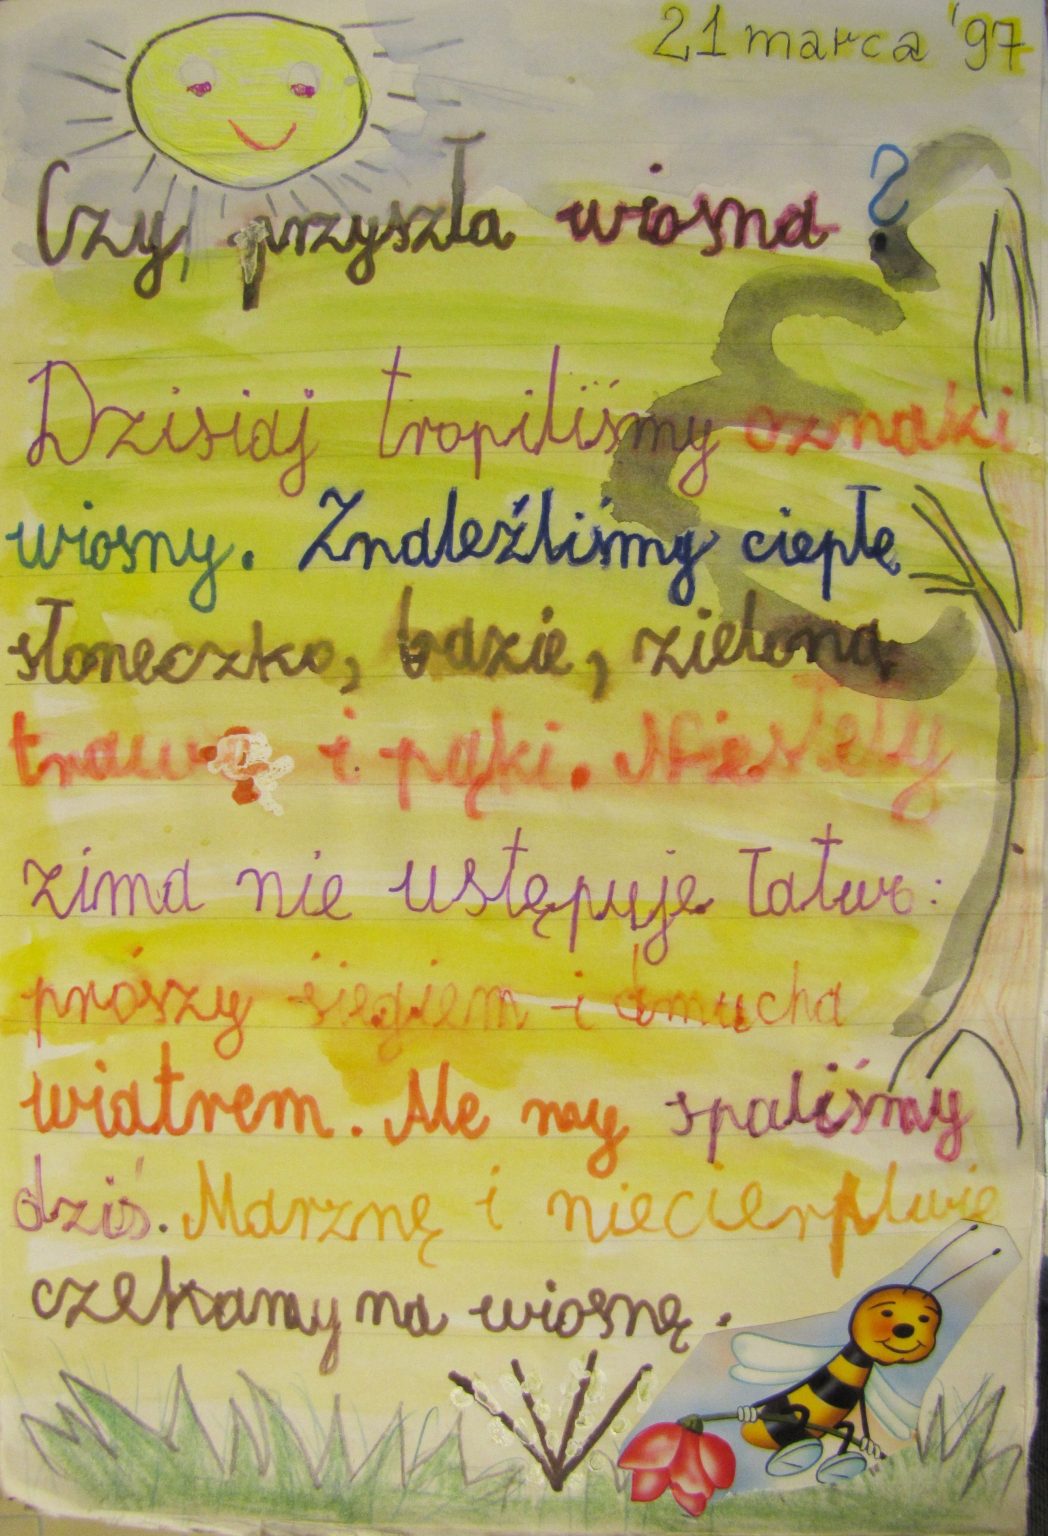 21 marca '97
Czy przyszła wiosna?
Dzisiaj tropiliśmy oznaki
wiosny. Znaleźliśmy ciepłe
słoneczko, bazie, zieloną
trawę i pąki. Niestety
zima nie ustępuje łatwo:
prószy śiegiem i dmucha
wiatrem. Ale my spaliśmy
dziś. Marznę i niecierpliwie
czekamy na wiosnę.